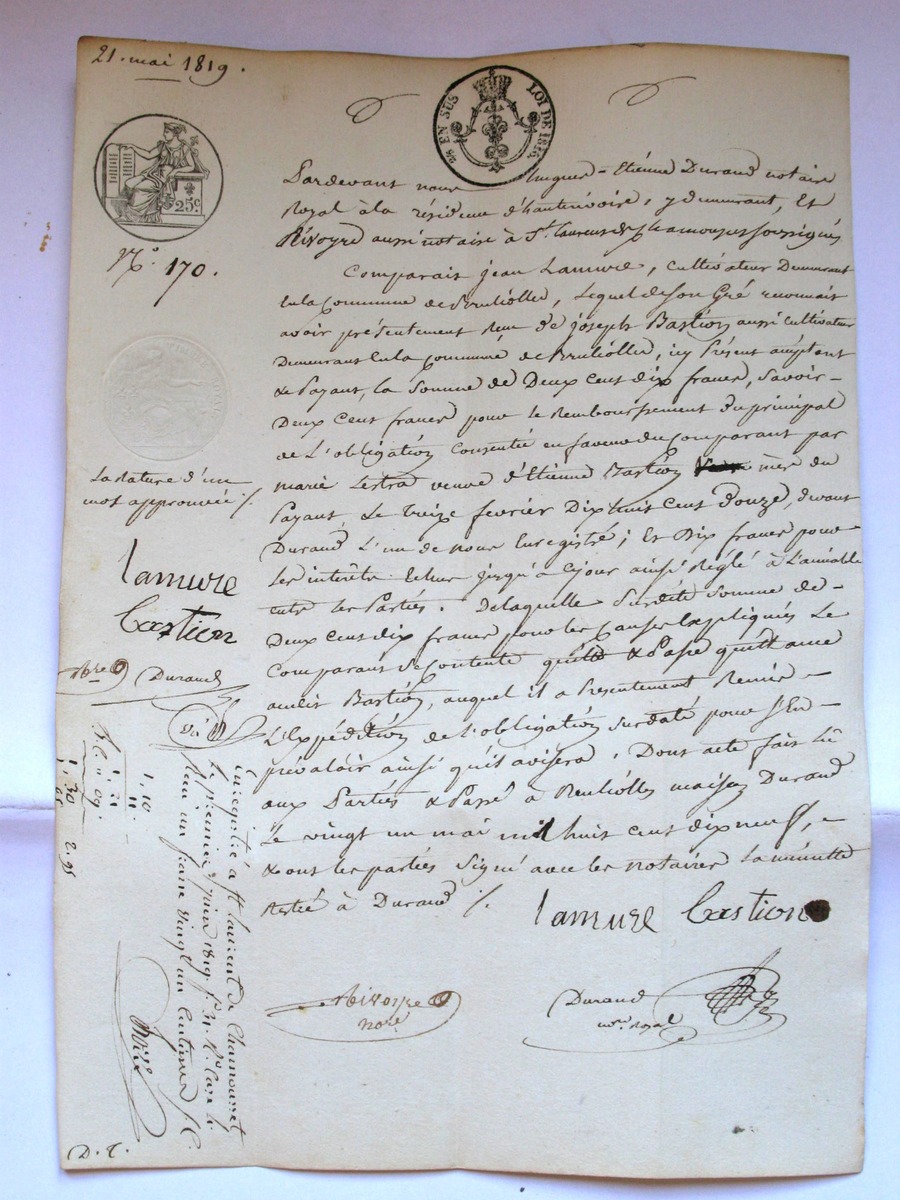 21. mai 1819.
25 EN SUS LOI DE 1816
25c.
N.o 170.
Pardevant nous hugues-Etienne Durand notaire
Royal à la résidence d'hauterivoire, y demeurant, Et
Rivoyre aussi notaire à St. Laurent de Chamousset soussignés
Comparait jean Lamure, cultivateur Demeurant
En la Commune de Brullolles, Lequel de Son Gré reconnait
avoir présentement Reçu de joseph Bastion aussi cultivateur
Demeurant En la Commune de Brullolles, icy Présent acceptant
& Payant, la Somme de Deux Cent dix francs, Savoir
Deux Cent francs pour le Remboursement du principal
de L'obligation Consentie en faveur du Comparant par
marie Lestra veuve d'Etienne Bastion mère du
Payant, Le treize fevrier Dix huit Cent Douze, devant
Durand L'un de nous Enregistré; Et Dix francs pour
Les intérêts Echus jusqu'à Cejour ainsi Réglé à L'amiable
entre les Parties. De laquelle Susdite Somme de
Deux Cent dix francs pour les Causes Expliquées Le
Comparant Se Contente quitte & Passe quittance
audit Bastion, auquel il a Présentement Remis
L'Expédition de l'obligation Surdaté pour S'En
prévaloir ainsi qu'il avisera. Dont acte fait Lû
aux Parties & Passé à Brullolles maison Durand
Le vingt un mai mil huit cent dix neuf,
& ont les parties Signé avec les notaires La minutte
Restée à Durand /.
Lamure Bastion
Rivoyre
nore
Durand
nre royal
La Rature d'un
mot approuvée /.
Lamure
Bastion
Durand
Enregistré à St laurent de Chamousset
le premier juin 1819. f.
un franc vingt un Centimes
1,10
11
1,21
D. T.